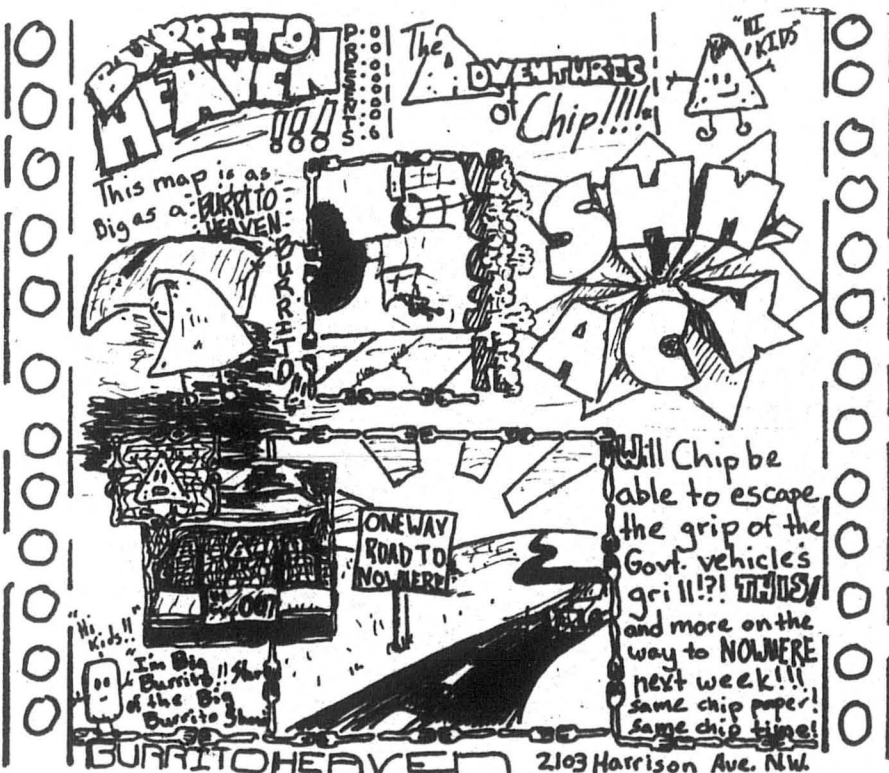 BURRITO
HEAVEN
PRESENTS
!!!
The ADVENTURES
of Chip!!!!
"HI
KIDS"
This map is as
Big as a BURRITO
HEAVEN
BURRITO!!
SHM
ACK
ONE WAY
ROAD TO
NOWHERE
Will Chip be
able to escape
the grip of the
Govt. vehicle's
grill!?! THIS!
and more on the
way to NOWHERE
next week!!!
same chip paper!
same chip time!
"Hi
Kids!!"
"I'm Big
Burrito!! Star
of the Big
Burrito Show
BURRITO HEAVEN
2103 Harrison Ave. N.W.